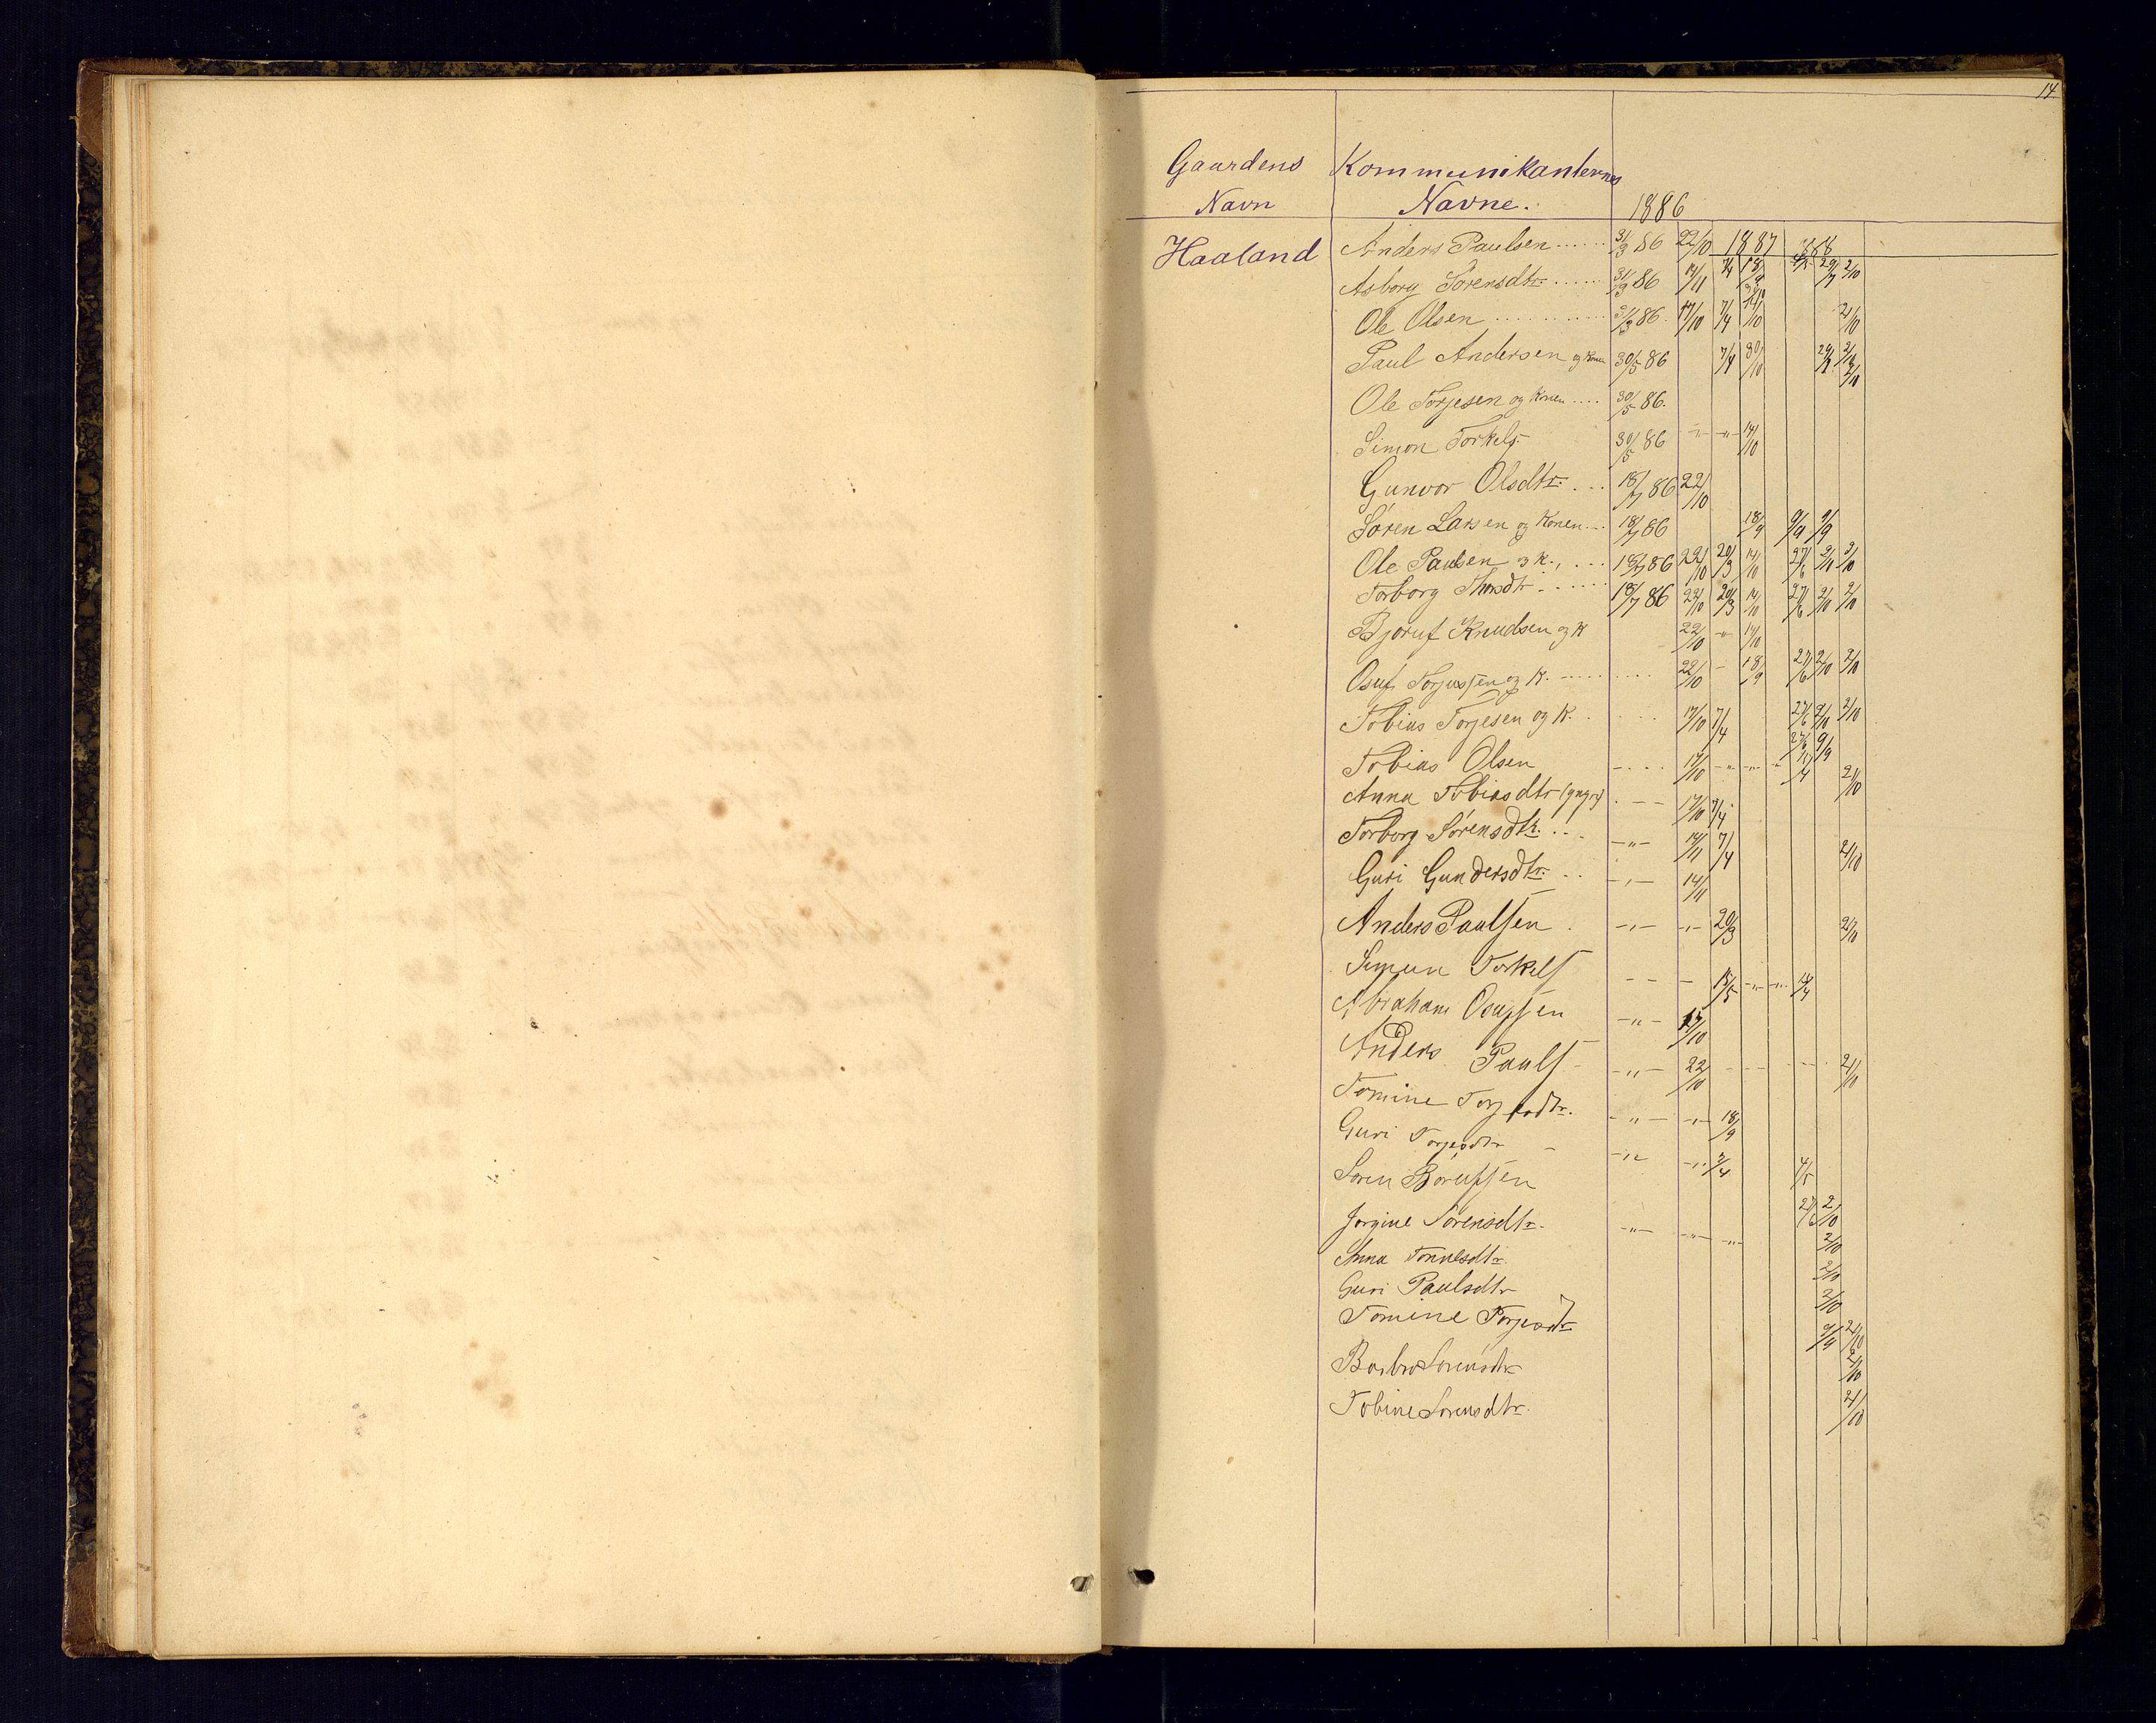 14
Gaardens Kommunikanternes
Navn Navne. 1886
Haaland Anders Paulsen ...... 31/3 86 22/10 1887 1888
Asborg Sørensdtr. ...... 31/3 86 14/11 7/4 18/9 29/7 2/10
Ole Olsen ............ 31/3 86. 17/10 7/4 14/10 2/10
Paul Andersen og Konen 30/5 86 7/4 30/10 29/7 2/10
Ole Torjesen og Konen .... 30/5 86.
Simon Torkels. 30/5 86 -"- -"- 14/10
Gunvor Olsdtr. ... 18/7 86 22/10
Søren Larsen og Konen ... 18/7 86 18/9 9/9 9/9
Ole Paulsen og K., ... 18/7 86 22/10 20/3 14/10 27/6 2/10 2/10
Torborg Thorsdtr. ...... 18/7 86 22/10 20/3 14/10 27/6 2/10 2/10
Bjoruf Knudsen og K 22/10 -"- 14/10
Osuf Torjussen og K. ......... 22/10 - 18/9 27/6 2/10 2/10
Tobias Torjesen og K. .... 17/10 7/4 27/6 2/10 2/10
Tobias Olsen - . . . 17/10 -"- -"- " 2/10
Anna Tobiasdtr (yngre) . - - 17/10 7/4
Torborg Sørensdtr. ... -"- 14/11 7/4 2/10
Guri Gundersdtr. .. -"- 14/11
Anders Paulsen . -"- -"- 20/3 2/10
Simun Torkels - - - 15/5 -"- -"-
Abraham Osufsen -"- 17/10
Anders Pauls - -"- 22/10 - - - - - - 2/10
Tomine Torjesdtr. -"- -"- 18/9
Guri Torjesdtr - -"- -"- 7/4
Soren Børufsen
Jorgine Sørensdtr. -"- -"- -"- 27/6 2/10
Anna Tonnesdtr. 2/10
Guri Paulsdtr 2/10
Tomine Torjesdtr 2/10
Barbro Sorensdtr 2/10
Tobine Sorensdtr. 2/10